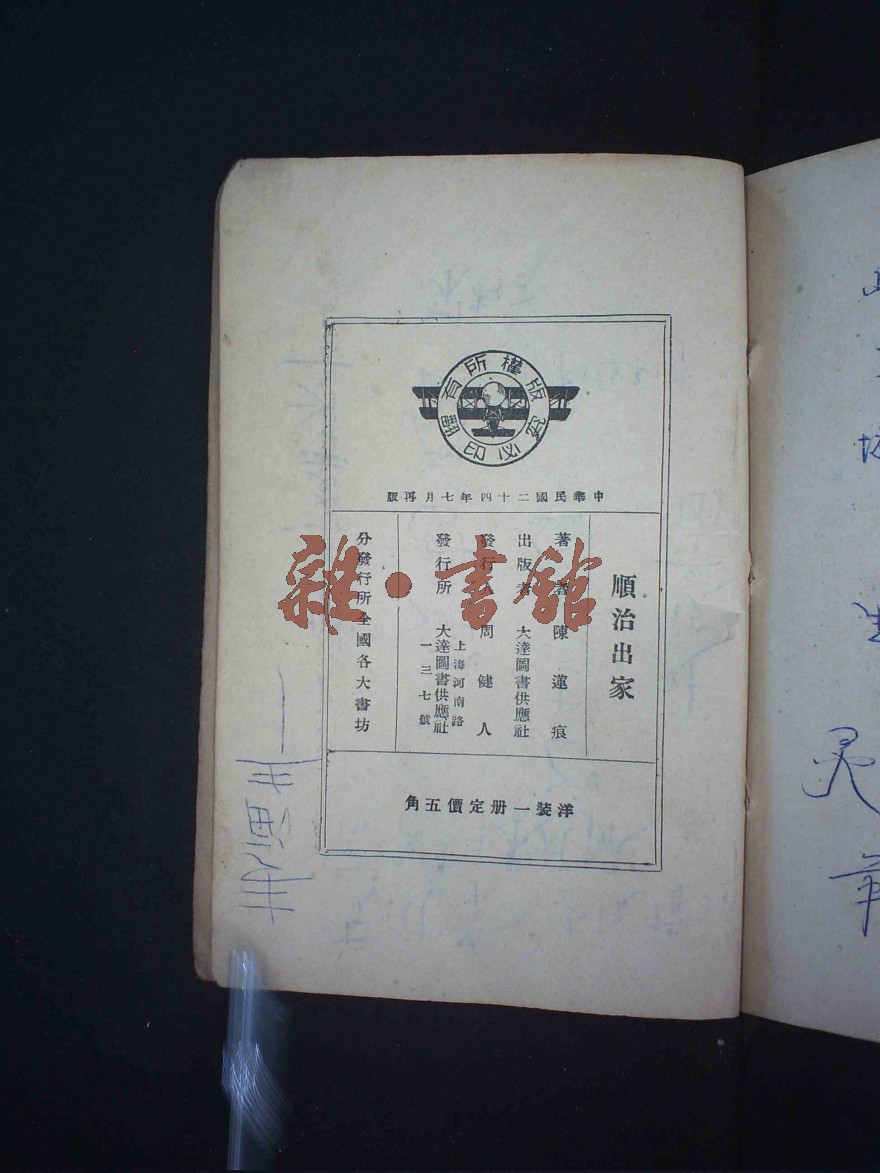 版權所有
翻印必究
中華民國二十四年七月再版
順治出家
著者 陳蓮痕
出版者 大達圖書供應社
發行人 周健人
發行所 大達圖書供應社
上海河南路
一三七號
分發行所全國各大書坊
洋裝一册定價五角
雜·書館